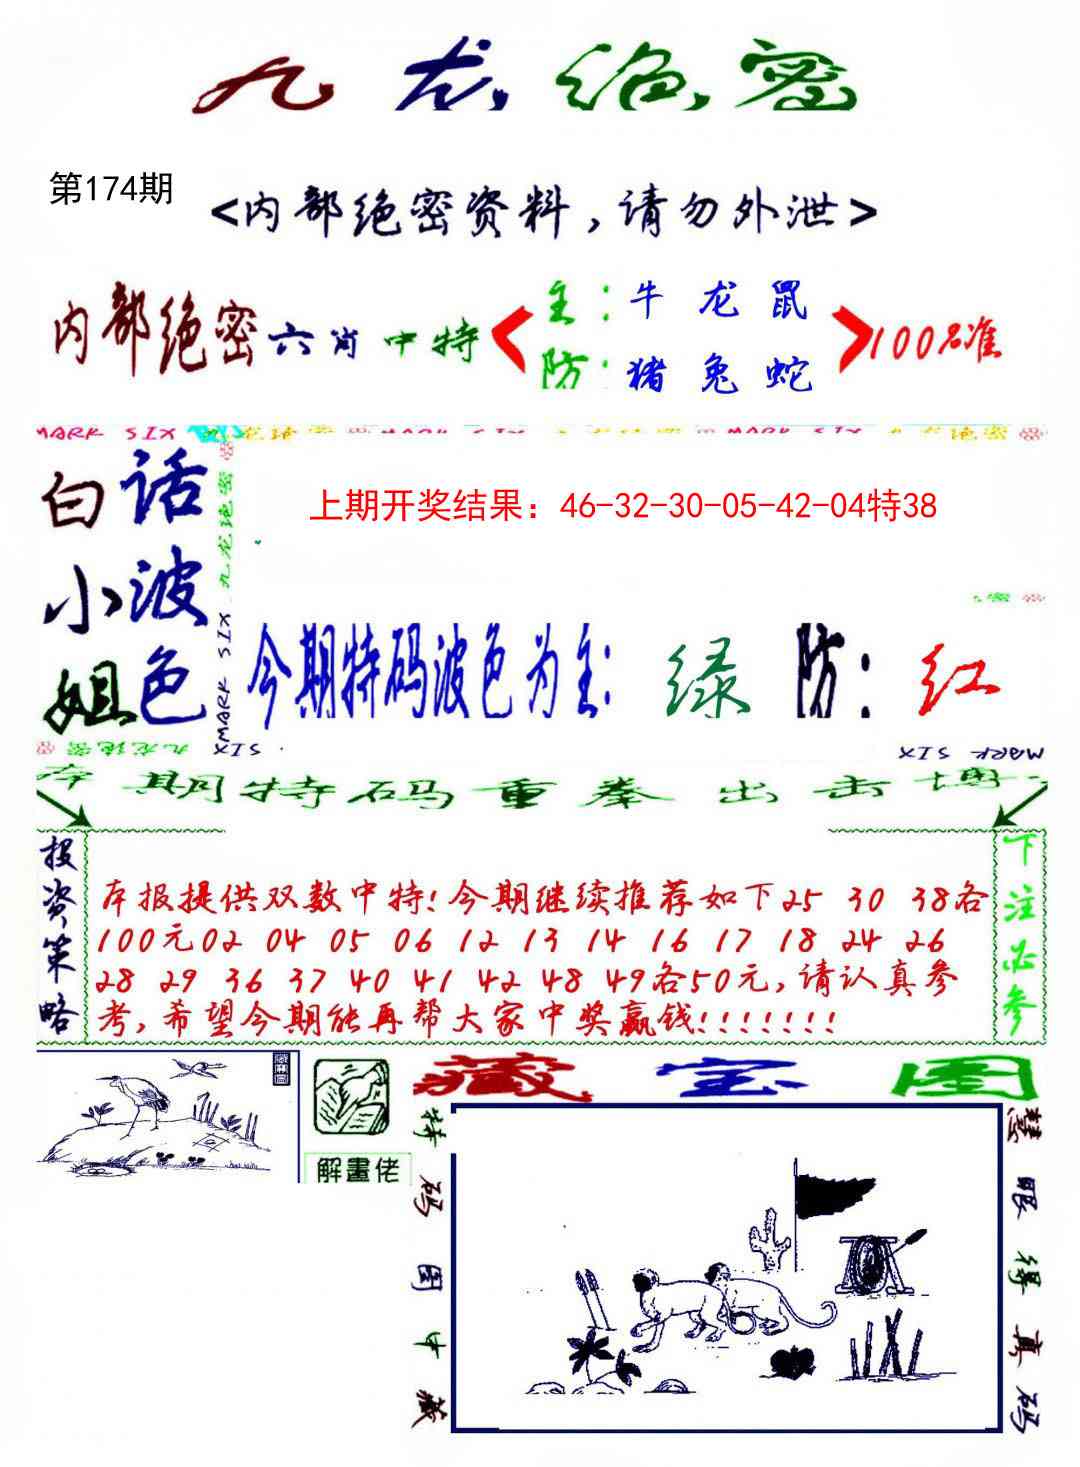 九龙绝密
第174期
<内部绝密资料，请勿外泄>
内部绝密六肖中特
主：牛 龙 鼠
防：猪 兔 蛇
100%准
MARK SIX 九龙绝密 MARK SIX 九龙绝密 MARK SIX 九龙绝密
白话
小波
姐色
九龙绝密
MARK SIX
上期开奖结果：46-32-30-05-42-04特38
今期特码波色为主：绿 防：红
九龙绝密 MARK SIX
MARK SIX
本期特码重拳出击博
投资策略
本报提供双数中特!今期继续推荐如下25 30 38各
100元02 04 05 06 12 13 14 16 17 18 24 26
28 29 36 37 40 41 42 48 49各50元,请认真参
考,希望今期能再帮大家中奖赢钱!!!!!!!
下注必参
解畫佬
藏宝图
特码图中藏
慧眼得真码